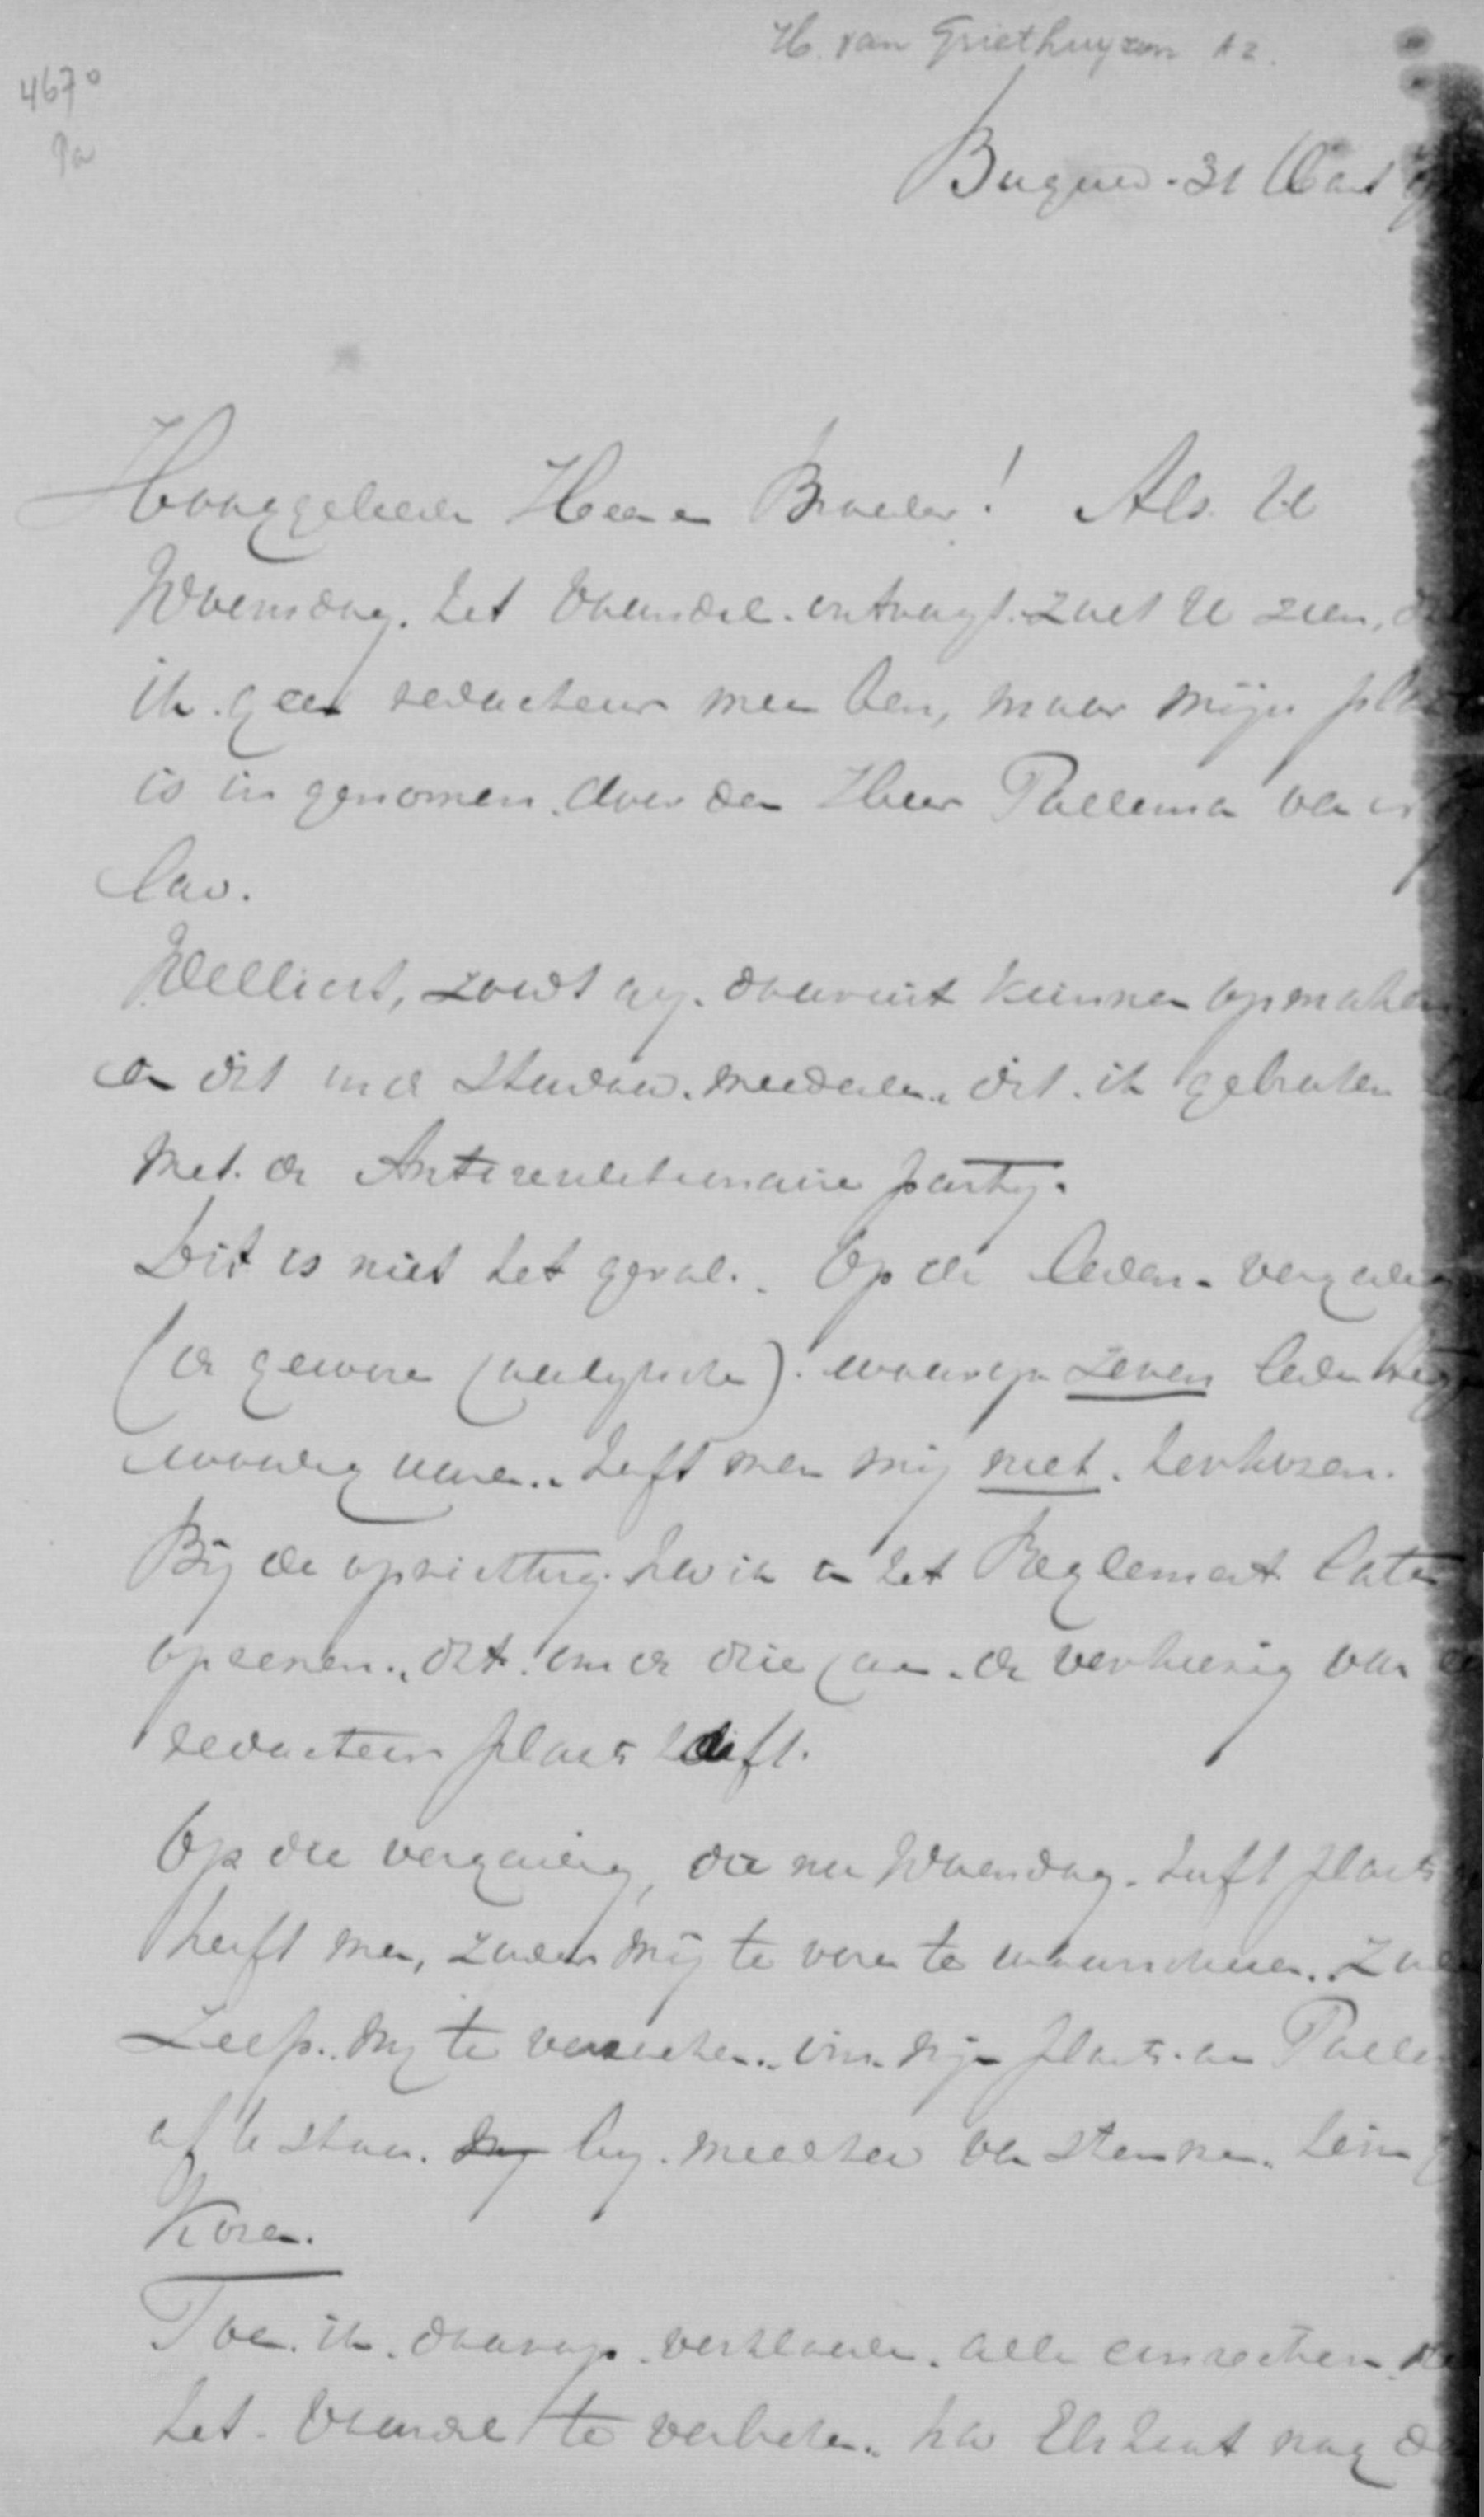 H. van Griethuyzen Az.
4670
Pa
31 Maart
Hooggeleerde Heer en Broeder! Als U
Woensdag het Vaandel ontvangt zult U zien, d
ik geen redacteur meer ben, maar mijn pla
is ingenomen door den Heer Paeleman van
lau.
Wellicht, zoudt gij daaruit kunnen opmaken
en dit in de Standaard meedeelen, dat ik gebroken
met de Antirevolutionaire partij.
Dit is niet het geval. Op de leden-vergadering
(de gewone jaarlijksche) waarop zeven leden teg
woordig waren, heeft men mij niet herkozen.
Bij de oprichting heb ik in het Reglement laten
opnemen, dat om de drie jaar de verkiezing van
redacteur plaats heeft.
Op die vergadering, die nu Woensdag heeft plaats
heeft men, zonder mij te voren te waarschuwen,
zelfs mij te verzoeken om mijn plaats aan
af te staan bij meerderheid van stemmen hem
kozen.
Toen ik daarop verklaarde alle
het Vaandel te verbeten, nog